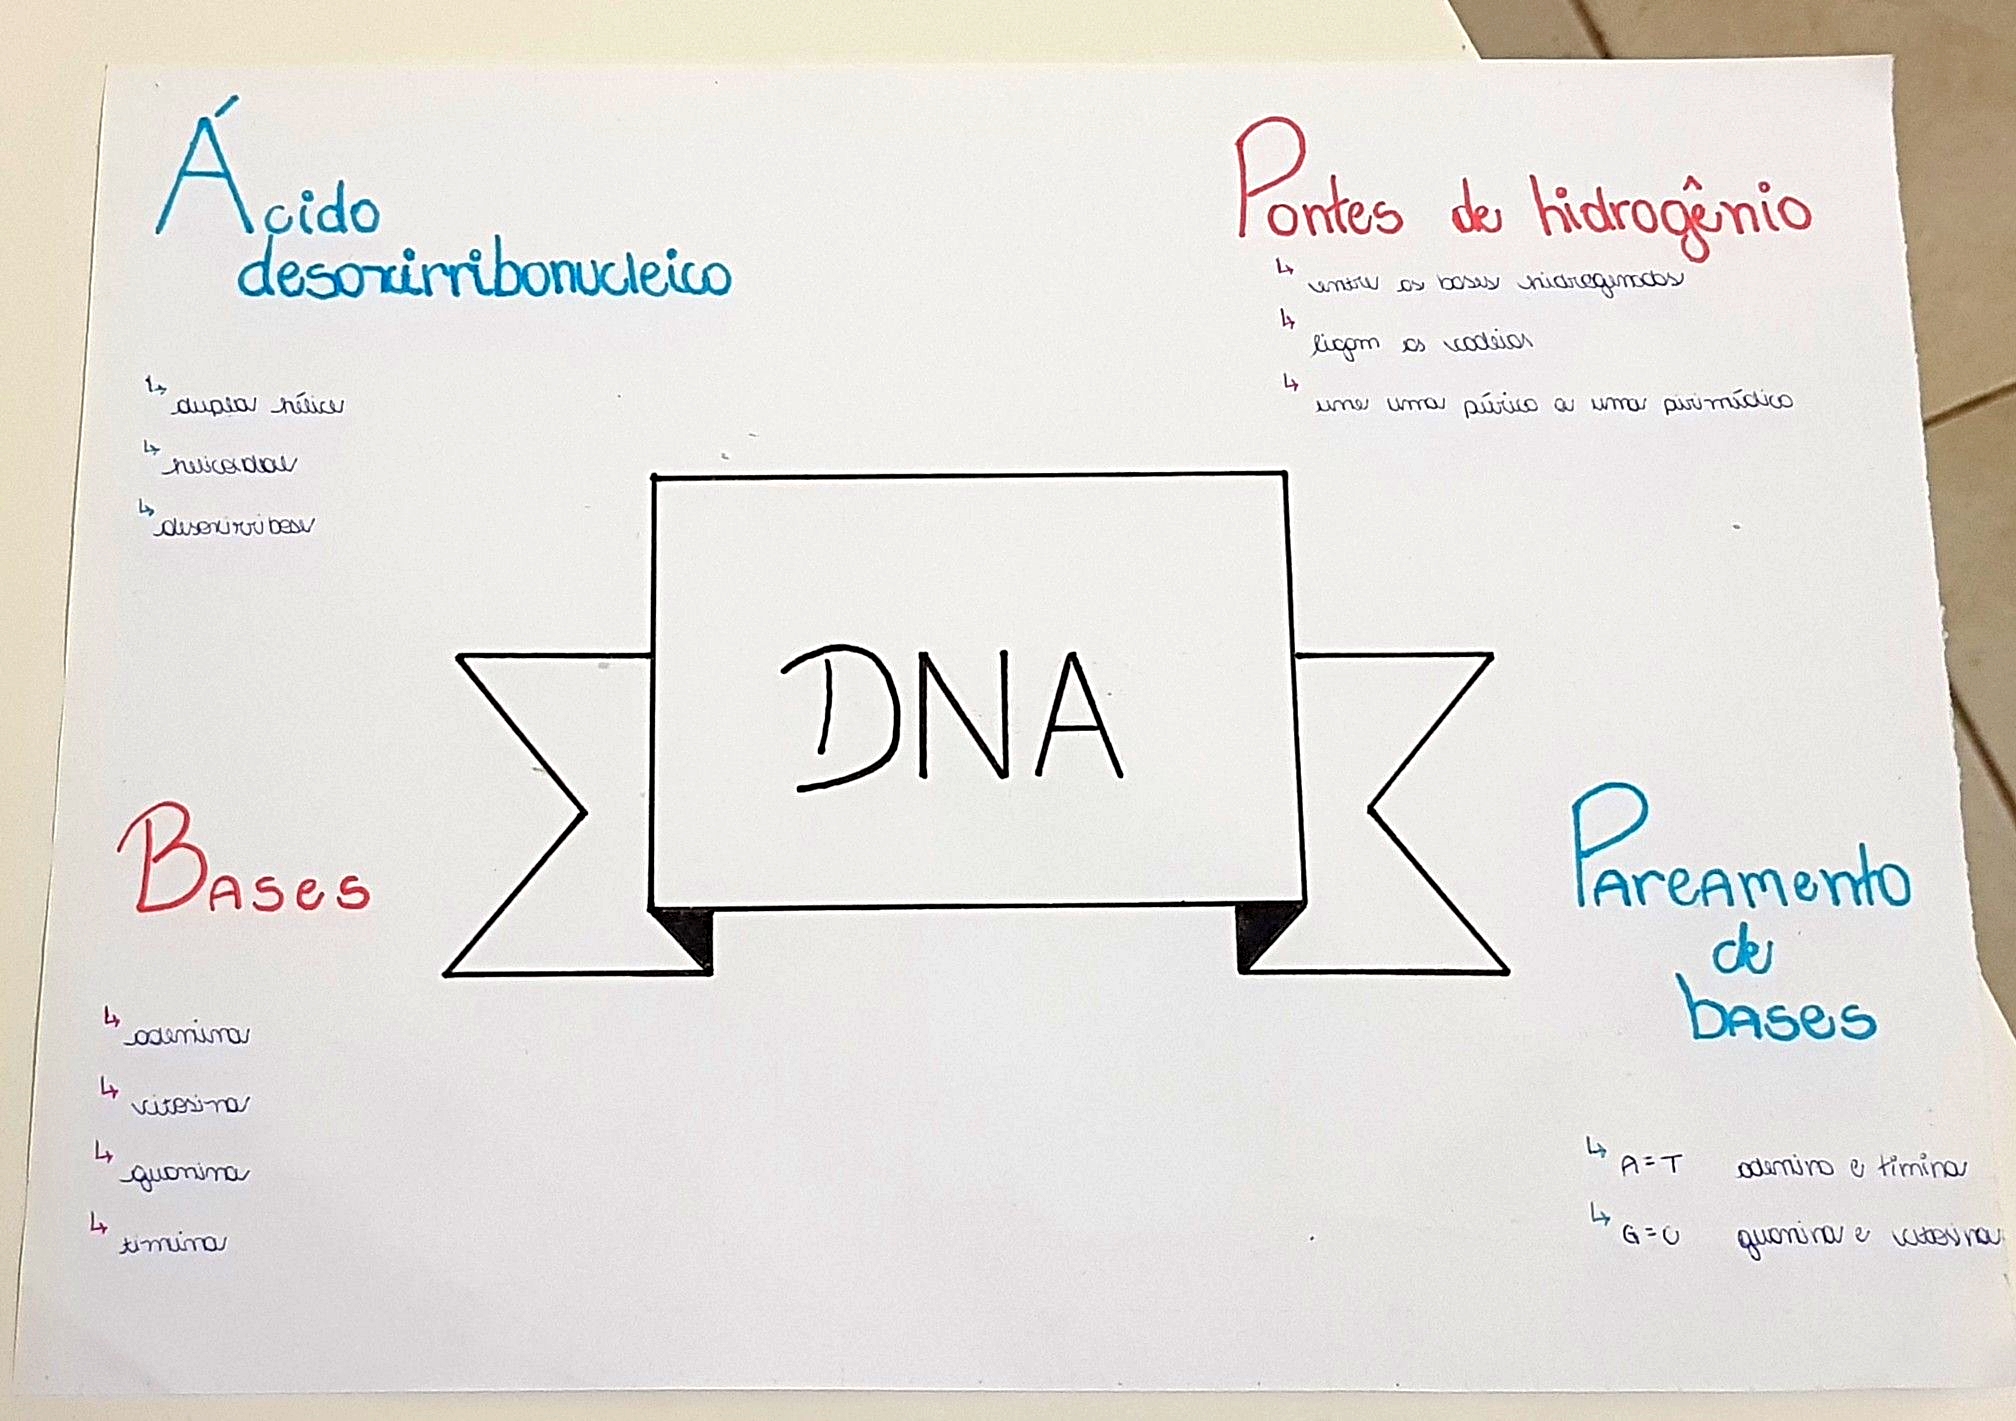 Ácido
desoxirribonucleico
↳ dupla hélice
↳ helicoidal
↳ desoxirribose
Pontes de hidrogênio
↳ entre as bases hidrogenadas
↳ ligam as cadeias
↳ une uma púrica a uma pirimídica
DNA
Bases
↳ adenina
↳ citosina
↳ guanina
↳ timina
Pareamento
de
bases
↳ A=T adenina e timina
↳ G=C guanina e citosina